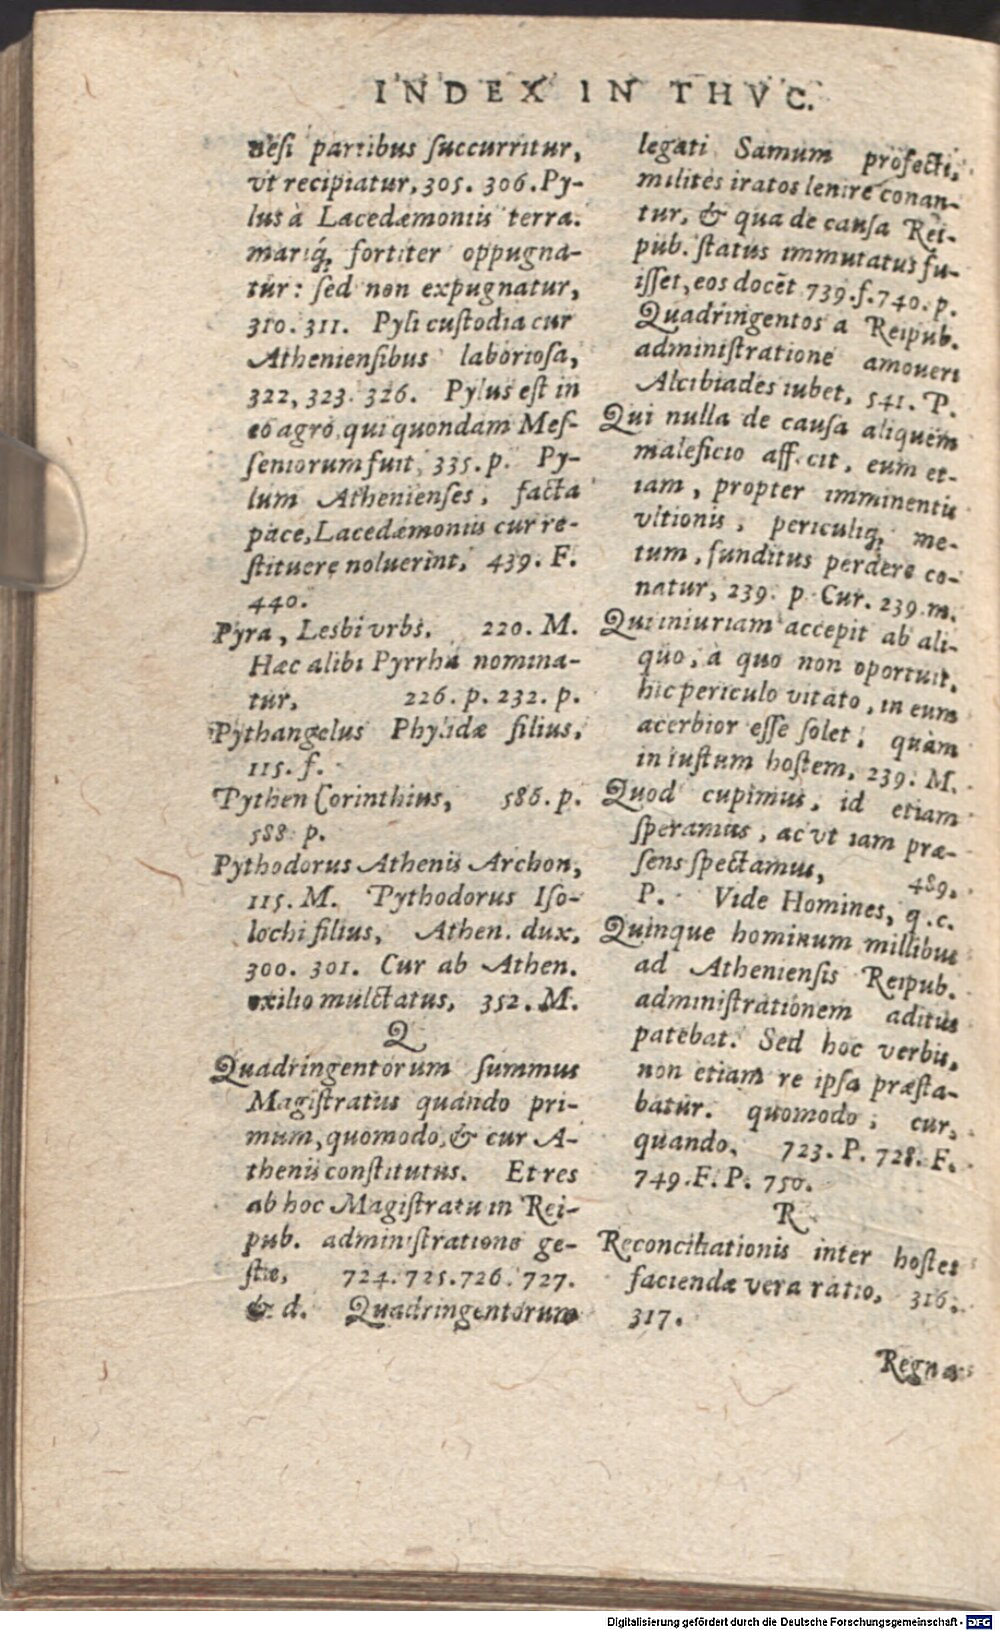 INDEX IN THVC.
nesi partibus ſuccurritur,
vt recipiatur, 305. 306. Py-
lus à Lacedæmoniis terra.
mariq́, fortiter oppugna-
tur: ſed non expugnatur,
310. 311. Pyli cuſtodia cur
Athenienſibus laborioſa,
322, 323. 326. Pylus eſt in
eo agro, qui quondam Meſ-
ſeniorum fuit, 335. p. Py-
lum Athenienſes, facta
pace, Lacedæmoniis cur re-
ſtituere noluerint, 439. F.
440.
Pyra, Lesbi vrbs, 220. M.
Hæc alibi Pyrrha nomina-
tur, 226. p. 232. p.
Pythangelus Phylidæ filius,
115. f.
Pythen Corinthius, 586. p.
588 p.
Pythodorus Athenis Archon,
115. M. Pythodorus Iſo-
lochi filius, Athen. dux,
300. 301. Cur ab Athen.
exilio mulctatus, 352. M.
Q
Quadringentorum ſummus
Magiſtratus quando pri-
mum, quomodo, & cur A-
thenis conſtitutus. Et res
ab hoc Magiſtratu in Rei-
pub. adminiſtratione ge-
ſtæ, 724. 725. 726. 727.
& d. Quadringentorum
legati Samum profecti,
milites iratos lenire conan-
tur, & qua de cauſa Rei-
pub. ſtatus immutatus fu-
iſſet, eos docēt 739. f. 740. p.
Quadringentos a Reipub.
adminiſtratione amoueri
Alcibiades iubet, 541. P.
Qui nulla de cauſa aliquem
maleficio affecit, eum et-
iam, propter imminentis
vltionis, periculiq́, me-
tum, funditus perdere co-
natur, 239. p Cur. 239. m.
Qui iniuriam accepit ab ali-
quo, à quo non oportuit,
hic periculo vitato, in eum
acerbior eſſe ſolet, quàm
in iuſtum hoſtem, 239. M.
Quod cupimus, id etiam
ſperamus, ac vt iam præ-
ſens ſpectamus, 489.
P. Vide Homines, q. c.
Quinque hominum millibus
ad Athenienſis Reipub.
adminiſtrationem aditus
patebat. Sed hoc verbis,
non etiam re ipſa præſta-
batur. quomodo, cur,
quando, 723. P. 728. F.
749. F. P. 750.
R
Reconciliationis inter hoſtes
faciendæ vera ratio, 316.
317.
Regna
Digitalisierung gefördert durch die Deutsche Forschungsgemeinschaft - DFG